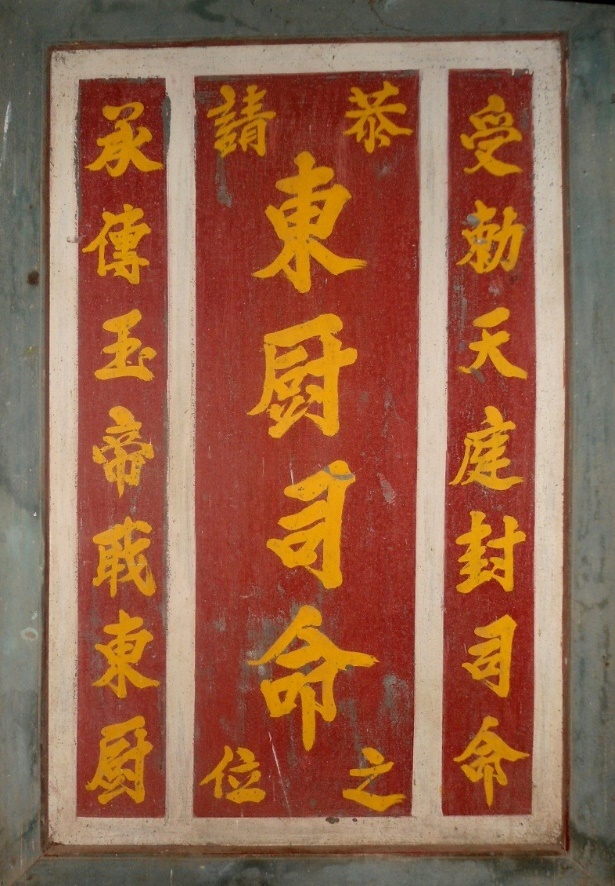 受勅天庭封司命
恭請
東厨司命
之位
承傳玉帝聀東厨